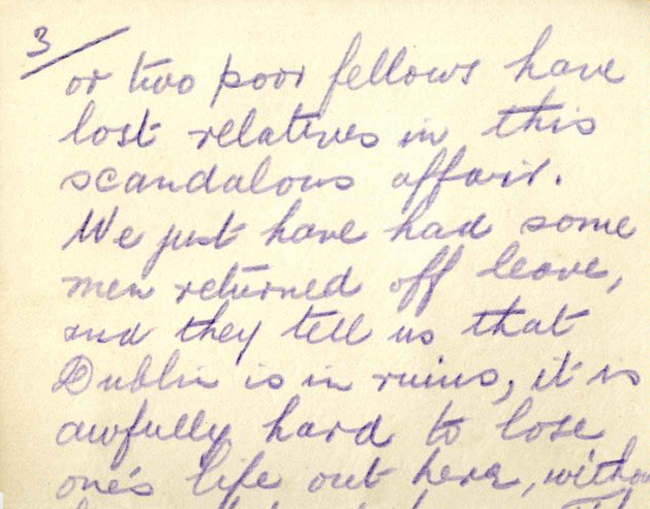 3/
or two poor fellows have
lost relatives in this
scandalous affair.
We just have had some
men returned off leave,
and they tell us that
Dublin is in ruins, it is
awfully hard to lose
one's life out here,